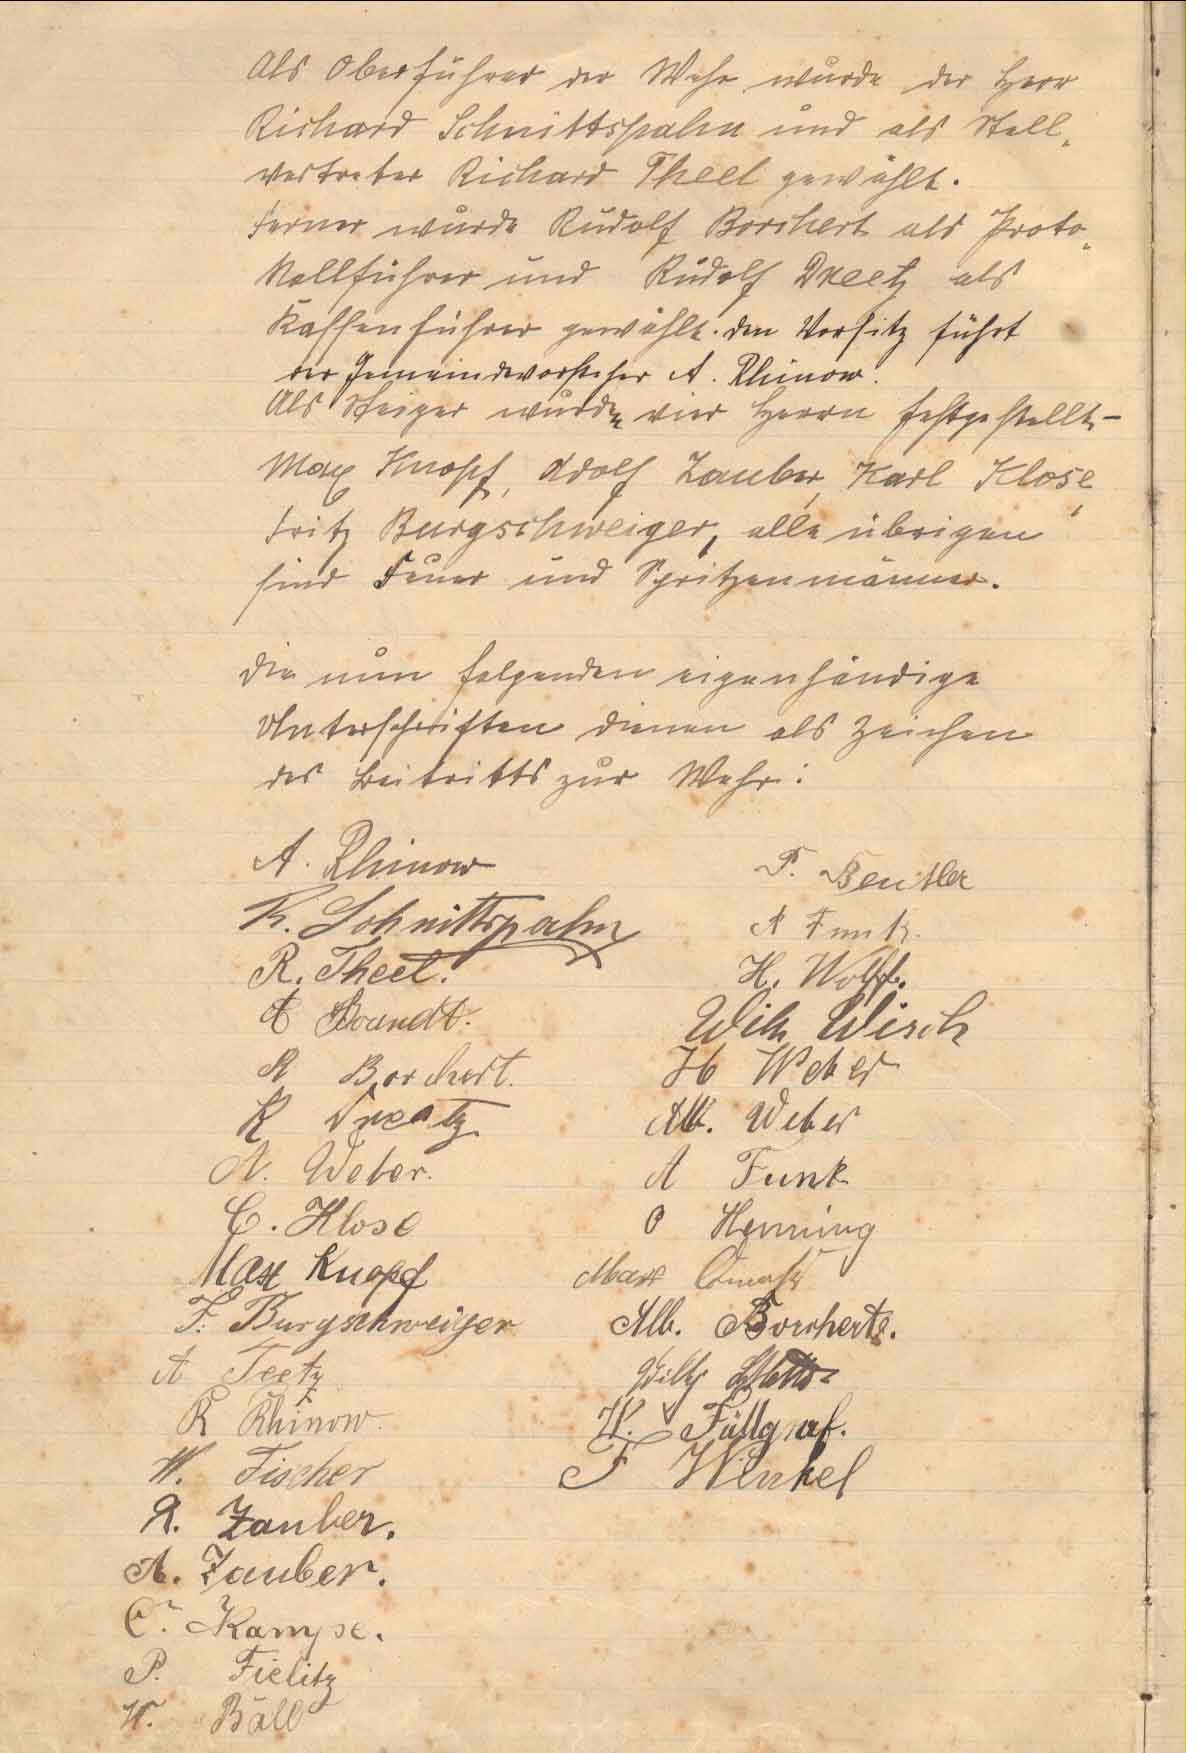 Als Oberführer der Wehr wurde der Herr
Richard Schnittspahn und als Stell-
vertreter Richard Theel gewählt.
Ferner wurde Rudolf Borchert als Proto-
kollführer und Rudolf Dreetz als
Kassenführer gewählt. den Vorsitz führt
der Gemeindevorsteher A. Rhinow.
Als Steiger wurden vier Herrn festgestellt –
Max Knopf, Adolf Zauber, Karl Klose,
Fritz Burgschweiger, alle übrigen
sind Feuer und Spritzenmänner.
Die nun folgenden eigenhändige
Unterschriften dienen als Zeichen
des Beitritts zur Wehr:
A. Rhinow
R. Schnittspahn
R. Theel.
Brandt.
R Borchert.
R Dreetz
A. Weber.
C. Klose
Max Knopf
F. Burgschweiger
A Teetz
R Rhinow.
W. Fischer
R. Zauber.
A. Zauber.
C. Kampe.
P. Fielitz
W. Bäll
F. Beutler
A Funk.
H. Wolff.
Wilh Wisch
H Weber
Alb. Weber
A Funk
O Henning
Max
Alb. Borchert.
Willy
W. Füllgraf.
F Winkel